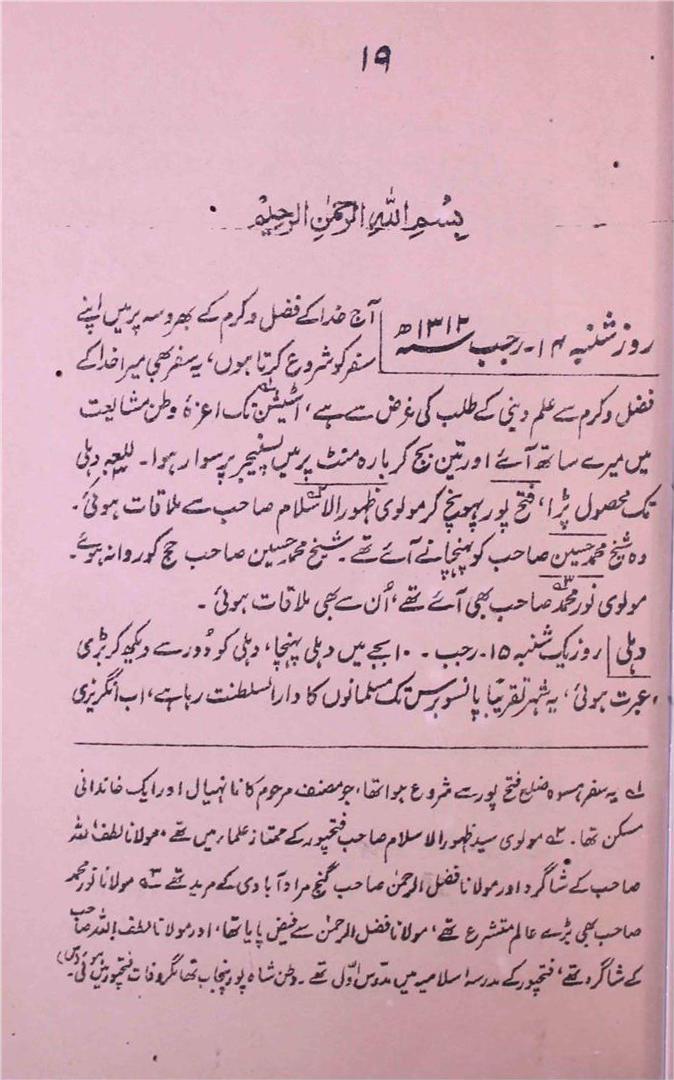 ۱۹
بسم اللہ الرحمن الرحیم
روز شنبہ ۱۴۔ رجب سنہ ۱۳۱۲ھ
آج خدا کے فضل و کرم کے بھروسہ پر میں اپنے
سفر کو شروع کرتا ہوں، یہ سفر بھی میرا خدا کے
فضل و کرم سے علم دینی کے طلب کی غرض سے ہے، اسٹیشن تک اعزۂ وطن مشایعت
میں میرے ساتھ آئے اور تین بج کر بارہ منٹ پر میں پسنیجر پر سوار ہوا۔ دہلی
تک محصول پڑا، فتح پور پہونچ کر مولوی ظہور الاسلام صاحب سے ملاقات ہوئی۔
وہ شیخ محمد حسین صاحب کو پہنچانے آئے تھے۔ شیخ محمد حسین صاحب حج کو روانہ ہوئے۔
مولوی نور محمد صاحب بھی آئے تھے، اُن سے بھی ملاقات ہوئی۔
دہلی روز یک شنبہ ۱۵۔ رجب۔ ۱۰ بجے میں دہلی پہنچا، دہلی کو دُور سے دیکھ کر بڑی
عبرت ہوئی، یہ شہر تقریباً پانسو برس تک مسلمانوں کا دار السلطنت رہا ہے، اب انگریزی
۱؎ یہ سفر ہسوہ ضلع فتح پور سے شروع ہوا تھا، جو مصنف مرحوم کا نانہیال اور ایک خاندانی
مسکن تھا۔ ۲؎ مولوی سید ظہور الاسلام صاحب فتحپور کے ممتاز علماء میں تھے، مولانا لطف اللہ
صاحب کے شاگرد اور مولانا فضل الرحمٰن صاحب گنج مراد آبادی کے مرید تھے ۳؎ مولانا نور محمد
صاحب بھی بڑے عالم متشرع تھے، مولانا فضل الرحمٰن سے فیض پایا تھا، اور مولانا لطف اللہ صاحب
کے شاگرد تھے، فتحپور کے مدرسہ اسلامیہ میں مدرّس اوّل تھے۔ وطن شاہ پور پنجاب تھا مگر وفات فتحپور میں ہوئی۔